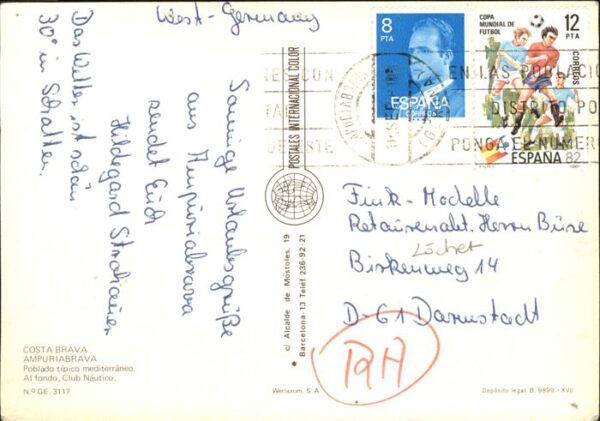 West-Germany
Das Wetter ist schön
30° in Schatten.
Sonnige Urlaubsgrüße
aus Ampuriabrava
sendet Euch
Hildegard
POSTALES INTERNACIONAL COLOR
c/ Alcalde de Móstoles, 19
Barcelona 13 Teléf 236-92 21
8
PTA
ESPAÑA
CORREOS
COPA
MUNDIAL DE
FUTBOL
12
PTA
CORREOS
ESPAÑA 82
EN LAS POBLACIO
DISTRITO PO
PONGA EL NUMER
Fink-Modelle
Retourenabt. Herrn Büse
Löchet
Birkenweg 14
D-61 Darmstadt
RA
COSTA BRAVA
AMPURIABRAVA
Poblado típico mediterráneo.
Al fondo, Club Náutico.
N.º GE. 3117
Werscrom, S. A.
Depósito legal. B. 9899. - XVII